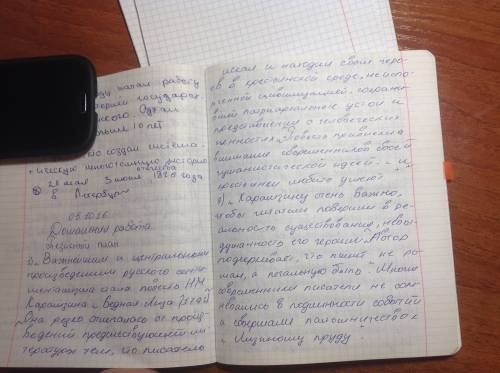 начал работу
историей государс-
ского. Отдал
лет
создал система-
тическую многотомную историю
22 мая 3 июня 1826 года
в Петербург
05.10.16.
Домашняя работа.
план
"Важнейшим и центральным
произведением русского сенти-
ментализма стала повесть Н.М.
Карамзина "Бедная Лиза" (1792)
Она резко отличалась от произ-
ведений предшествующей ли
тературы тем, что писатель
искал и находил своих геро-
ев в крестьянской среде, не испо-
рченной цивилизацией, сохранив-
шей патриархальные устои и
представления о человеческих
ценностях. Повесть привлекла
внимание современников своей
гуманистической идеей: "и
крестьянки любить умеют"
Карамзину очень важно,
чтобы читатели поверили в ре-
альность существования, невы-
думанность его героини. Автор
подчеркивает, что пишет не ро-
ман, а печальную быль. Многие
современники писателя не сом-
невались в подлинности событий
и совершали паломничество к
"Лизиному пруду"